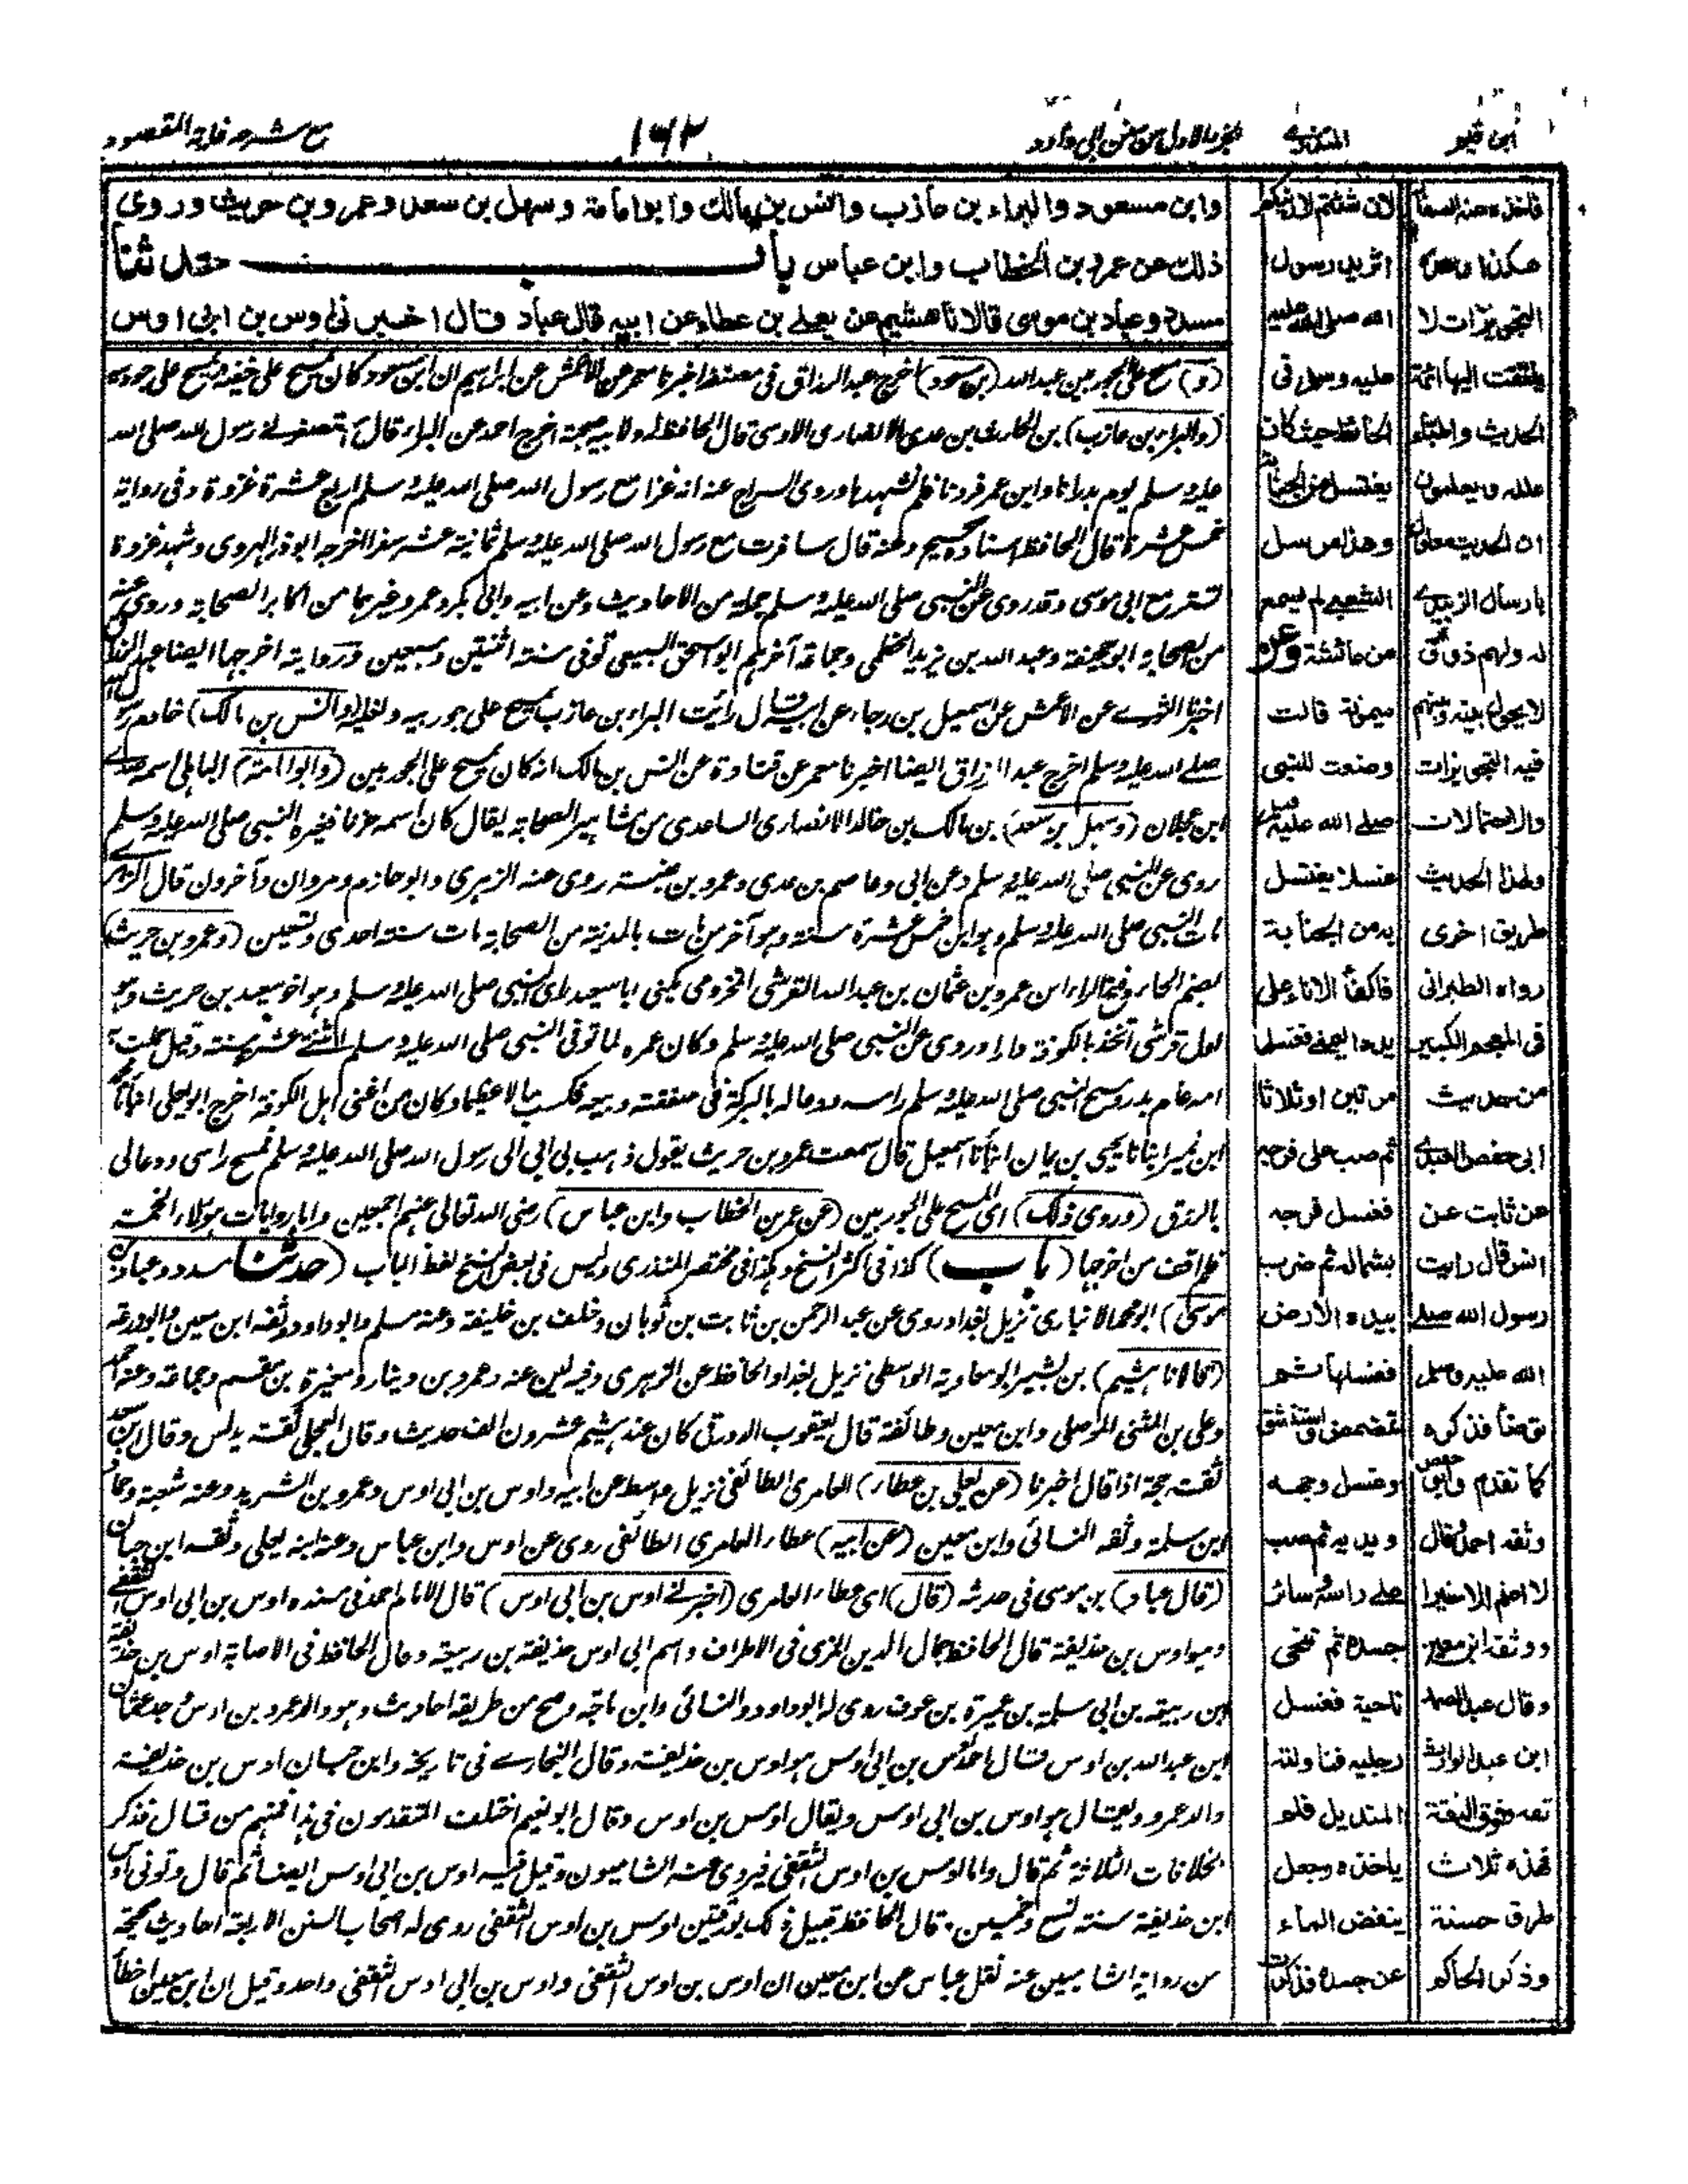 ابن قيم
المنذري
الجزء الاول من سنن ابي داود
١٦٢
مع شرحه غاية المقصود
وابن مسعود والبراء بن عازب وانس بن مالك وابو امامة وسهل بن سعد وعمرو بن حريث وروي
ذلك عن عمر بن الخطاب وابن عباس باب حدثنا
مسدد وعباد بن موسى قالا نا هشيم عن يعلى بن عطاء عن ابيه قال عباد قال اخبرني اوس بن ابي اوس
(و) مسح على الجوربين عبد الله (بن مسعود) اخرج عبد الرزاق في مصنفه اخبرنا معمر عن الاعمش عن ابراهيم ان ابن مسعود كان يمسح على خفيه ويمسح على جوربيه
(والبراء بن عازب) بن الحارث بن عدي الانصاري الاوسي قال الحافظ له ولابيه صحبة اخرج احمد عن البراء قال استصغرني رسول الله صلى الله
عليه وسلم يوم بدر انا وابن عمر فردنا فلم نشهدها وروى السراج عنه انه غزا مع رسول الله صلى الله عليه وسلم اربع عشرة غزوة وفي رواية
خمس عشرة قال الحافظ اسناده صحيح وعنه قال سافرت مع رسول الله صلى الله عليه وسلم ثمانية عشر سفرا اخرجه ابوذر الهروي وشهد غزوة
تستر مع ابي موسى وقد روى عن النبي صلى الله عليه وسلم جملة من الاحاديث وعن ابيه وابي بكر وعمر وغيرهما من اكابر الصحابة وروى عنه
من الصحابة ابو جحيفة وعبد الله بن يزيد الخطمي وجماعة آخرهم ابو اسحق السبيعي توفي سنة اثنتين وسبعين ورواية اخرجها ايضا عبد الرزاق
اخبرنا الثوري عن الاعمش عن اسمعيل بن رجاء عن ابيه قال رأيت البراء بن عازب يمسح على جوربيه ونعليه (وانس بن مالك) خادم رسول الله
صلى الله عليه وسلم اخرج عبد الرزاق ايضا اخبرنا معمر عن قتادة عن انس بن مالك انه كان يمسح على الجوربين (وابو امامة) الباهلي اسمه صدي
ابن عجلان (وسهل بن سعد) بن مالك بن خالد الانصاري الساعدي من مشاهير الصحابة يقال كان اسمه حزنا فغيره النبي صلى الله عليه وسلم
روى عن النبي صلى الله عليه وسلم وعن ابي وعاصم بن عدي وعمرو بن عبسة روى عنه الزهري وابو حازم ومروان وآخرون قال الزهري
مات النبي صلى الله عليه وسلم وهو ابن خمس عشرة سنة وهو آخر من مات بالمدينة من الصحابة مات سنة احدى وتسعين (وعمرو بن حريث)
بضم الحاء وفتح الراء ابن عمرو بن عثمان بن عبد الله القرشي المخزومي يكنى ابا سعيد رأى النبي صلى الله عليه وسلم وهو اخو سعيد بن حريث وهو
اول قرشي اتخذ بالكوفة دارا وروى عن النبي صلى الله عليه وسلم وكان عمره لما توفي النبي صلى الله عليه وسلم اثنتي عشرة سنة وقيل حملت
امه عام بدر ومسح النبي صلى الله عليه وسلم راسه ودعا له بالبركة في صفقته وبيعه فكسب مالا عظيما وكان من اغنى اهل الكوفة اخرج ابو يعلى اخبرنا
ابن نمير انبأنا يحيى بن يمان انبأنا اسمعيل قال سمعت عمرو بن حريث يقول ذهب بي ابي الى رسول الله صلى الله عليه وسلم فمسح راسي ودعا لي
بالرزق (وروي ذلك) اي المسح على الجوربين (عن عمر بن الخطاب وابن عباس) رضي الله تعالى عنهم اجمعين واما روايات هؤلاء الخمسة
فلم اقف من اخرجها (باب) كذا في اكثر النسخ وهكذا في مختصر المنذري وليس في بعض النسخ لفظ الباب (حدثنا مسدد وعباد بن
موسى) ابو محمد الانباري نزيل بغداد روى عن عبد الرحمن بن ثابت بن ثوبان وخلف بن خليفة وعنه مسلم وابو داود وثقه ابن معين وابو زرعة
(قالا نا هشيم) بن بشير ابو معاوية الواسطي نزيل بغداد الحافظ عن الزهري وفيه لين عنه وعمرو بن دينار ومغيرة بن مقسم وجماعة وعنه احمد
وعلي بن المثنى الموصلي وابن معين وطائفة قال يعقوب الدورقي كان عند هشيم عشرون الف حديث وقال العجلي ثقة يدلس وقال ابن سعد
ثقة حجة اذا قال اخبرنا (عن يعلى بن عطاء) العامري الطائفي نزيل واسط عن ابيه واوس بن ابي اوس وعمرو بن الشريد وعنه شعبة وحماد
ابن سلمة وثقه النسائي وابن معين (عن ابيه) عطاء العامري الطائفي روى عن اوس وابن عباس وعنه ابنه يعلى وثقه ابن حبان
(قال عباد) بن موسى في حديثه (قال) اي عطاء العامري (اخبرني اوس بن ابي اوس) قال الامام احمد في مسنده اوس بن ابي اوس الثقفي
وهو اوس بن حذيفة قال الحافظ جمال الدين المزي في الاطراف واسم ابي اوس حذيفة بن ربيعة وقال الحافظ في الاصابة اوس بن حذيفة
ابن ربيعة بن ابي سلمة بن عميرة بن عوف روى له ابو داود والنسائي وابن ماجة وصح من طريقه احاديث وهو والد عمرو بن اوس وجد عثمان
ابن عبد الله بن اوس قال احمد اوس بن ابي اوس هو اوس بن حذيفة وقال البخاري في تاريخه وابن حبان اوس بن حذيفة
والد عمرو ويقال هو اوس بن ابي اوس ويقال اوس بن اوس وقال ابو نعيم اختلف المتقدمون في هذا فمنهم من قال فذكر
الخلافات الثلاثة ثم قال واما اوس بن اوس الثقفي فيروي عنه الشاميون وقيل فيه اوس بن ابي اوس ايضا ثم قال وتوفي اوس
ابن حذيفة سنة تسع وخمسين، قال الحافظ قبيل ذلك بورقتين اوس بن اوس الثقفي روى له اصحاب السنن الاربعة احاديث صحيحة
من رواية الشاميين عنه نقل عباس عن ابن معين ان اوس بن اوس الثقفي واوس بن ابي اوس الثقفي واحد وقيل ان ابن معين اخطأ
لان شئتم لاريتكم
اثر يد رسول
الله صلى الله عليه
عليه وسلم في
الحائط حيث كان
يغتسل من الجنابة
وهذا مرسل
الشعبي لم يسمع
من عائشة وعن
ميمونة قالت
وضعت للنبي
صلى الله عليه وسلم
غسلا يغتسل
به من الجنابة
فاكفأ الاناء على
يده اليمنى فغسلها
مرتين او ثلاثا
ثم صب على فرجه
فغسل فرجه
بشماله ثم ضرب
بيده الارض
فغسلها ثم
تمضمض واستنشق
وغسل وجهه
ويديه ثم صب
على راسه وسائر
جسده ثم تنحى
ناحية فغسل
رجليه فناولته
المنديل فلم
ياخذه وجعل
ينفض الماء
عن جسده فذكرت
هكذا
التجويزات لا
يلتفت اليها ائمة
الحديث واطباء
علله ويعلمون
ان الحديث معلول
بارسال الزبيدي
له ولهم ذوق
لا يحول بينه وبينهم
فيه التجويزات
والاحتمالات
ولهذا الحديث
طريق اخرى
رواه الطبراني
في المعجم الكبير
من حديث
ابي حفص العبدي
عن ثابت عن
انس قال رايت
رسول الله صلى
الله عليه وسلم
توضأ فذكره
كما تقدم وابو حفص
وثقه احمد قال
لا اعلم الا خيرا
ووثقه ابن معين
وقال عبد الصمد
ابن عبد الوارث
ثقة وفوق الثقة
فهذه ثلاث
طرق حسنة
وذكر الحاكم